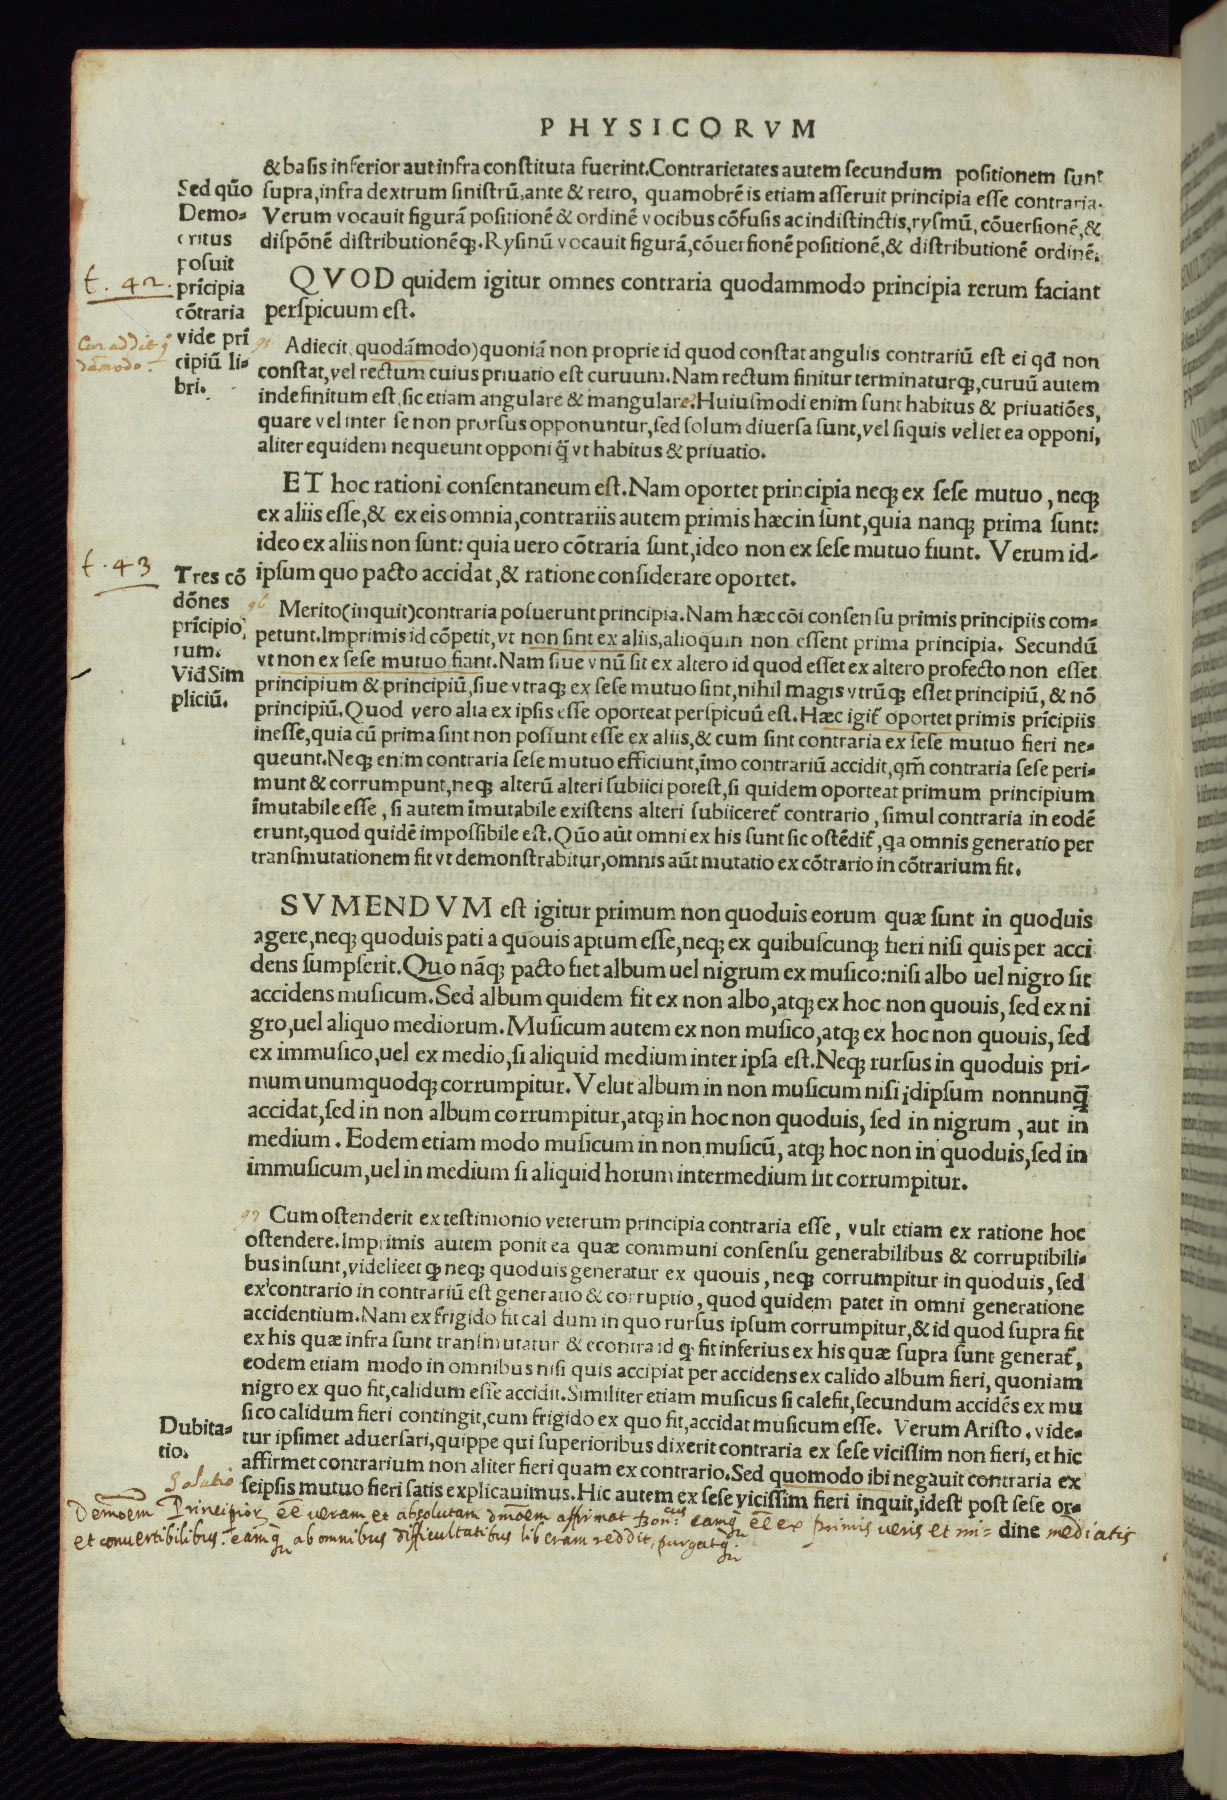 PHYSICORVM
& basis inferior aut infra constituta fuerint. Contrarietates autem secundum positionem sunt
supra, infra dextrum sinistrũ, ante & retro, quamobrẽ is etiam asseruit principia esse contraria.
Verum vocauit figurã positionẽ & ordinẽ vocibus cõfusis ac indistinctis, rysmũ, cõuersionẽ, &
dispõnẽ distributionẽq;. Rysinũ vocauit figurã, cõuersionẽ positionẽ, & distributionẽ ordinẽ.
Sed qũo
Demo-
critus
posuit
prĩcipia
cõtraria
vide prĩ
cipiũ li-
bri.
t. 42.
QVOD quidem igitur omnes contraria quodammodo principia rerum faciant
perspicuum est.
Cur addit q̃
dãmodo.
95
Adiecit, quodãmodo) quoniã non proprie id quod constat angulis contrariũ est ei qđ non
constat, vel rectum cuius priuatio est curuum. Nam rectum finitur terminaturq;, curuũ autem
indefinitum est, sic etiam angulare & inangulare. Huiusmodi enim sunt habitus & priuatiões,
quare vel inter se non prorsus opponuntur, sed solum diuersa sunt, vel siquis vellet ea opponi,
aliter equidem nequeunt opponi q̃ vt habitus & priuatio.
ET hoc rationi consentaneum est. Nam oportet principia neq; ex sese mutuo, neq;
ex aliis esse, & ex eis omnia, contrariis autem primis hæc in sunt, quia nanq; prima sunt:
ideo ex aliis non sunt: quia uero cõtraria sunt, ideo non ex sese mutuo fiunt. Verum id-
ipsum quo pacto accidat, & ratione considerare oportet.
t. 43
Tres cõ
dõnes
prĩcipio
rum.
Viđ Sim
pliciũ.
96
Merito (inquit) contraria posuerunt principia. Nam hæc cõi consensu primis principiis com-
petunt. Imprimis id cõpetit, vt non sint ex aliis, alioquin non essent prima principia. Secundũ
vt non ex sese mutuo fiant. Nam siue vnũ sit ex altero id quod esset ex altero profecto non esset
principium & principiũ, siue vtraq; ex sese mutuo sint, nihil magis vtrũq; esset principiũ, & nõ
principiũ. Quod vero alia ex ipsis esse oporteat perspicuũ est. Hæc igit̃ oportet primis prĩcipiis
inesse, quia cũ prima sint non possunt esse ex aliis, & cum sint contraria ex sese mutuo fieri ne-
queunt. Neq; enim contraria sese mutuo efficiunt, ĩmo contrariũ accidit, qm̃ contraria sese peri-
munt & corrumpunt, neq; alterũ alteri subiici potest, si quidem oporteat primum principium
ĩmutabile esse, si autem ĩmutabile existens alteri subiiceret̃ contrario, simul contraria in eodẽ
erunt, quod quidẽ impossibile est. Qũo aũt omni ex his sunt sic ostẽdit̃, qa omnis generatio per
transmutationem fit vt demonstrabitur, omnis aũt mutatio ex cõtrario in cõtrarium fit.
SVMENDVM est igitur primum non quoduis eorum quæ sunt in quoduis
agere, neq; quoduis pati a quouis aptum esse, neq; ex quibuscunq; fieri nisi quis per acci
dens sumpserit. Quo nãq; pacto fiet album uel nigrum ex musico: nisi albo uel nigro sit
accidens musicum. Sed album quidem fit ex non albo, atq; ex hoc non quouis, sed ex ni
gro, uel aliquo mediorum. Musicum autem ex non musico, atq; ex hoc non quouis, sed
ex immusico, uel ex medio, si aliquid medium inter ipsa est. Neq; rursus in quoduis pri-
mum unumquodq; corrumpitur. Velut album in non musicum nisi idipsum nonnunq̃
accidat, sed in non album corrumpitur, atq; in hoc non quoduis, sed in nigrum, aut in
medium. Eodem etiam modo musicum in non musicũ, atq; hoc non in quoduis, sed in
immusicum, uel in medium si aliquid horum intermedium sit corrumpitur.
97
Cum ostenderit ex testimonio veterum principia contraria esse, vult etiam ex ratione hoc
ostendere. Imprimis autem ponit ea quæ communi consensu generabilibus & corruptibili-
bus insunt, videlicet qp neq; quoduis generatur ex quouis, neq; corrumpitur in quoduis, sed
ex contrario in contrariũ est generatio & corruptio, quod quidem patet in omni generatione
accidentium. Nam ex frigido fit calidum in quo rursus ipsum corrumpitur, & id quod supra fit
ex his quæ infra sunt transmutatur & econtra id qp fit inferius ex his quæ supra sunt generat̃,
eodem etiam modo in omnibus nisi quis accipiat per accidens ex calido album fieri, quoniam
nigro ex quo fit, calidum esse accidit. Similiter etiam musicus si calefit, secundum accidẽs ex mu
sico calidum fieri contingit, cum frigido ex quo fit, accidat musicum esse. Verum Aristo. vide-
tur ipsimet aduersari, quippe qui superioribus dixerit contraria ex sese vicissim non fieri, et hic
affirmet contrarium non aliter fieri quam ex contrario. Sed quomodo ibi negauit contraria ex
seipsis mutuo fieri satis explicauimus. Hic autem ex sese vicissim fieri inquit, idest post sese or-
dine
Dubita-
tio.
Solutio
Demõem Principior̃ eẽ ueram et absolutam dmõem affirmat eamq; eẽ ex primis veris et im= mediatis
et conuertibilibus. eamq; ab omnibus difficultatibus liberam reddit, purgatq;